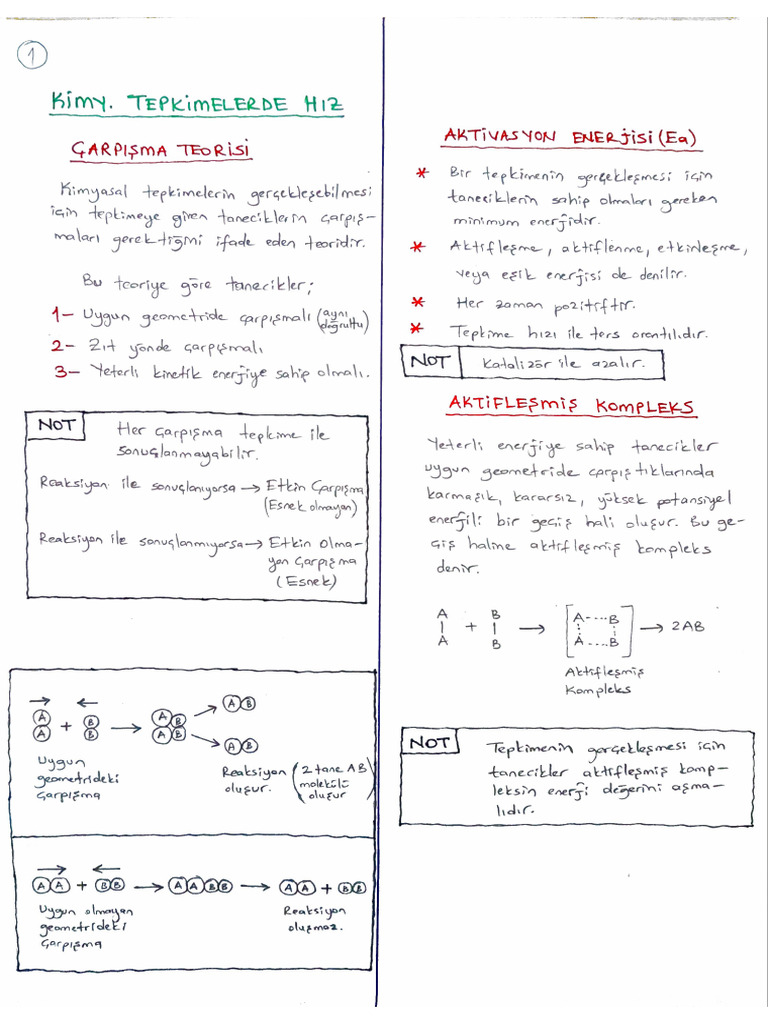 1
Kimy. TEPKİMELERDE HIZ
ÇARPIŞMA TEORİSİ
Kimyasal tepkimelerin gerçekleşebilmesi
için tepkimeye giren taneciklerin çarpış-
maları gerektiğini ifade eden teoridir.
Bu teoriye göre tanecikler;
1- Uygun geometride çarpışmalı (aynı doğrultu)
2- Zıt yönde çarpışmalı
3- Yeterli kinetik enerjiye sahip olmalı.
NOT
Her çarpışma tepkime ile
sonuçlanmayabilir.
Reaksiyon ile sonuçlanıyorsa → Etkin Çarpışma
(Esnek olmayan)
Reaksiyon ile sonuçlanmıyorsa → Etkin Olma-
yan Çarpışma
(Esnek)
A B A B A B
A + B → A B A B
Uygun
geometrideki
Çarpışma
Reaksiyon
oluşur.
(2 tane AB
molekülü
oluşur)
A A + B B → A A B B → A A + B B
Uygun olmayan
geometrideki
Çarpışma
Reaksiyon
oluşmaz.
AKTİVASYON ENERJİSİ (Ea)
* Bir tepkimenin gerçekleşmesi için
taneciklerin sahip olmaları gereken
minimum enerjidir.
* Aktifleşme, aktiflenme, etkinleşme,
veya eşik enerjisi de denilir.
* Her zaman pozitiftir.
* Tepkime hızı ile ters orantılıdır.
NOT
Katalizör ile azalır.
AKTİFLEŞMİŞ KOMPLEKS
Yeterli enerjiye sahip tanecikler
uygun geometride çarpıştıklarında
karmaşık, kararsız, yüksek potansiyel
enerjili bir geçiş hali oluşur. Bu ge-
çiş haline aktifleşmiş kompleks
denir.
A B A----B
| + | → → 2AB
A B A----B
Aktifleşmiş
Kompleks
NOT
Tepkimenin gerçekleşmesi için
tanecikler aktifleşmiş komp-
leksin enerji değerini aşma-
lıdır.